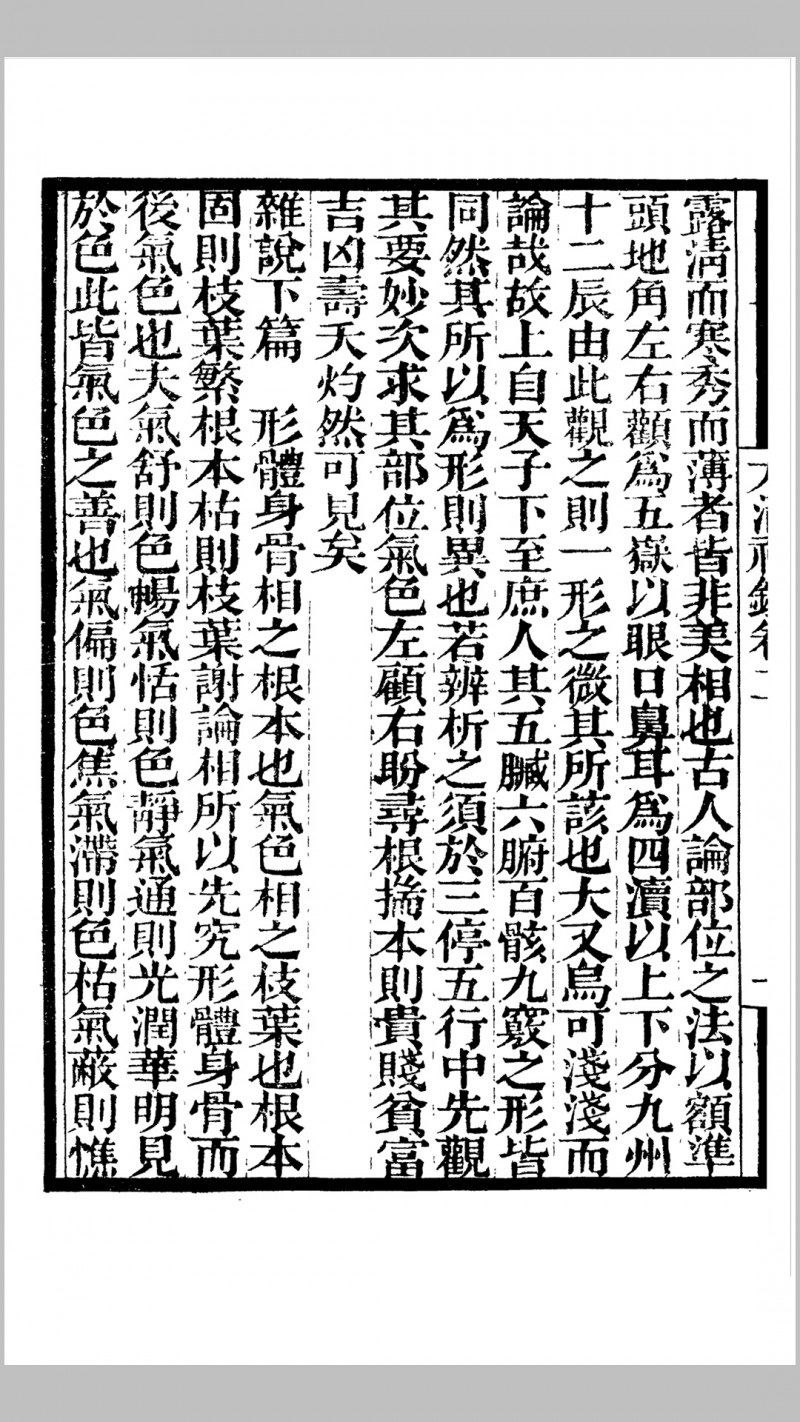 露淸而寒秀而薄者皆非美相也古人論部位之法以額準
頭地角左右顴爲五嶽以眼口鼻耳爲四瀆以上下分九州
十二辰由此觀之則一形之微其所該也大又烏可淺淺而
論哉故上自天子下至庶人其五臟六腑百骸九竅之形皆
同然其所以爲形則異也若辨析之須於三停五行中先觀
其要妙次求其部位氣色左顧右盼尋根揣本則貴賤貧富
吉凶壽夭灼然可見矣
雜說下篇　形體身骨相之根本也氣色相之枝葉也根本
固則枝葉繁根本枯則枝葉謝論相所以先究形體身骨而
後氣色也夫氣舒則色暢氣恬則色靜氣通則光潤華明見
於色此皆氣色之善也氣偏則色焦氣滯則色枯氣蔽則憔